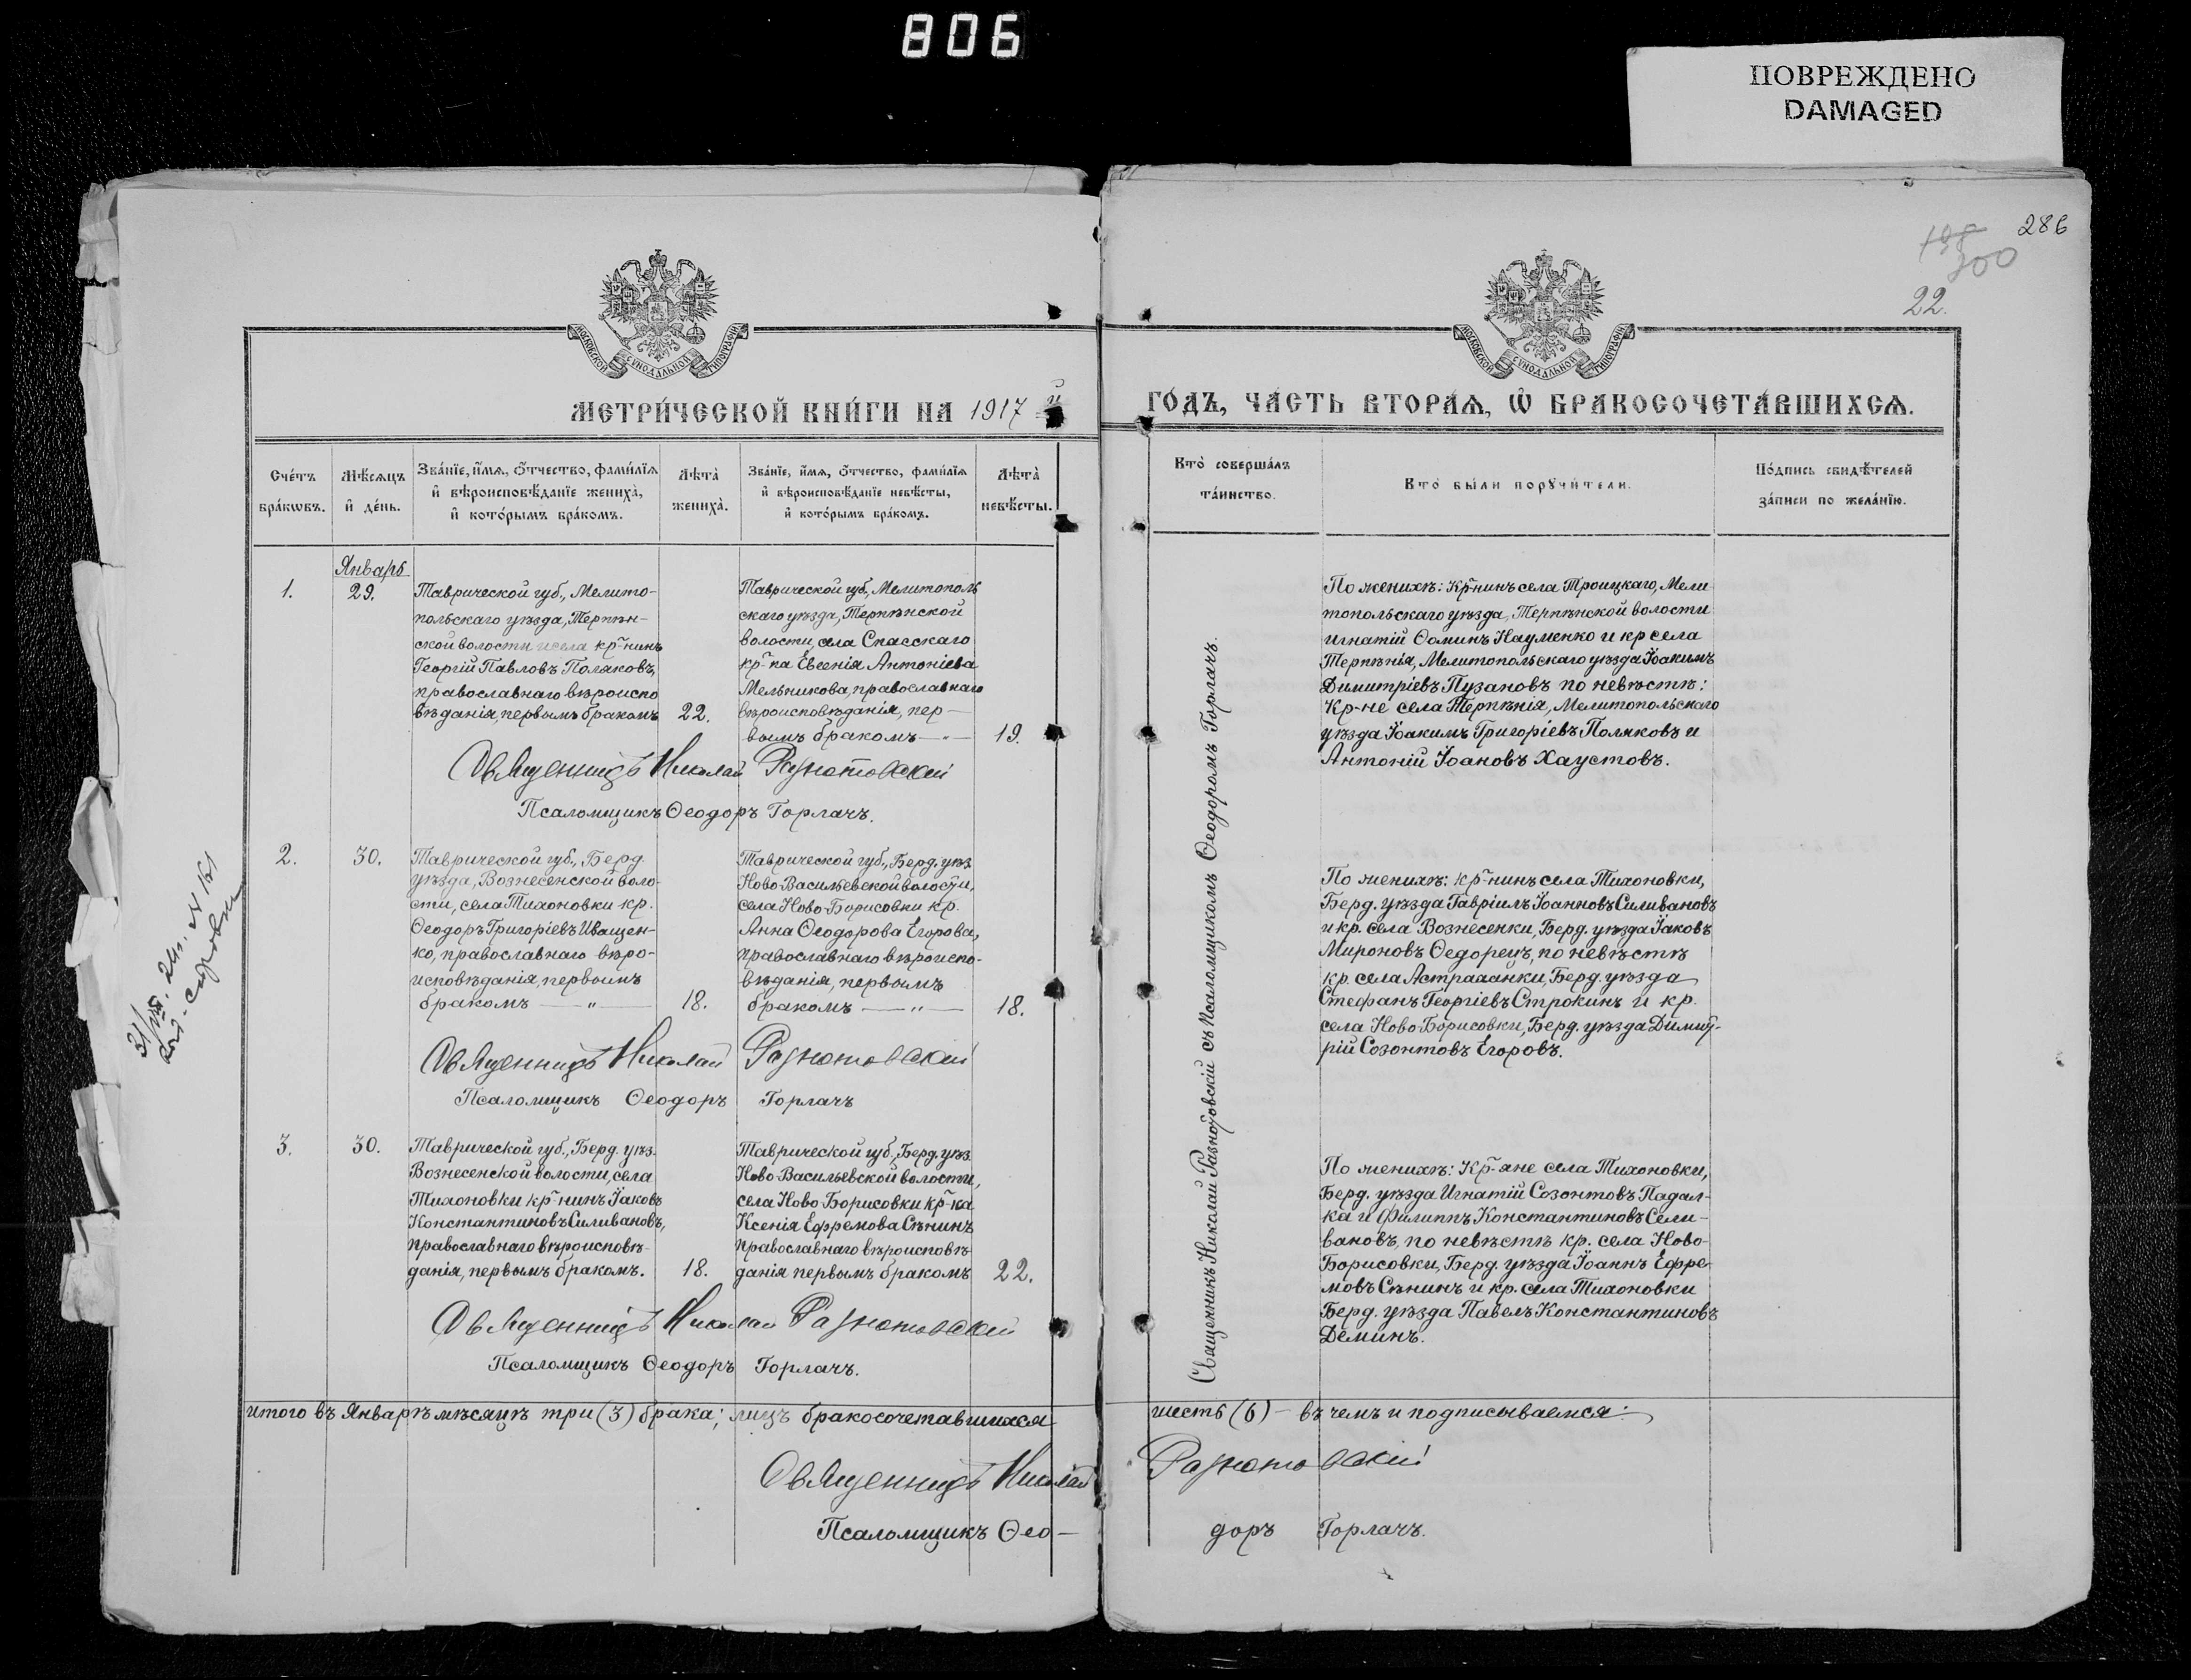 806
ПОВРЕЖДЕНО
DAMAGED
286
300
22.
МОСКОВСКОЙ СУНОДАЛЬНОЙ ТИПОГРАФІИ
МОСКОВСКОЙ СУНОДАЛЬНОЙ ТИПОГРАФІИ
МЕТРИ́ЧЕСКОЙ КНИ́ГИ НА 1917 й
ГО́ДЪ, ЧА́СТЬ ВТОРА́Ѧ, Ѡ҆ БРАКОСОЧЕТА́ВШИХСѦ.
Сче́тъ
бра́кѡвъ.
Мѣ́сяцъ
и҆ де́нь.
Зва́нїе, и҆́мѧ, ѻ҆́тчество, фами́лїѧ
и҆ вѣроисповѣ́данїе жениха̀,
и҆ кото́рымъ бра́комъ.
Лѣта̀
жениха̀.
Зва́нїе, и҆́мѧ, ѻ҆́тчество, фами́лїѧ
и҆ вѣроисповѣ́данїе невѣ́сты,
и҆ кото́рымъ бра́комъ.
Лѣта̀
невѣ́сты.
Кто̀ соверша́лъ
та́инство.
Кто̀ бы́ли порꙋчи́тели.
По́дпись свидѣ́телей
за́писи по жела́нїю.
Январь
1.
29.
Таврической губ., Мелито-
польскаго уѣзда, Терпѣн-
ской волости и села кр-нинъ
Георгій Павловъ Поляковъ,
православнаго вѣроиспо
вѣданія, первымъ бракомъ
22.
Таврической губ., Мелитополь
скаго уѣзда, Терпѣнской
волости, села Спасскаго
кр-ка Евсенія Антоніева
Мельникова, православнаго
вѣроисповѣданія, пер-
вымъ бракомъ — " —
19.
Священникъ Николай Разнотовскій
Псаломщикъ Ѳеодоръ Горлачъ.
По женихѣ: Кр-нинъ села Троицкаго, Мели
топольскаго уѣзда, Терпѣнской волости
Игнатій Ѳоминъ Науменко и кр села
Терпѣнія, Мелитопольскаго уѣзда Іоакимъ
Димитріевъ Пузановъ по невѣстѣ:
Кр-не села Терпѣнія, Мелитопольскаго
уѣзда Іоакимъ Григоріевъ Поляковъ и
Антоній Іоановъ Хаустовъ.
2.
30.
Таврической губ., Берд.
уѣзда, Вознесенской воло-
сти, села Тихоновки кр.
Ѳеодоръ Григоріевъ Иващен-
ко, православнаго вѣро-
исповѣданія, первымъ
бракомъ — " —
18.
Таврической губ., Берд. уѣз.
Ново-Васильевской волости,
села Ново-Борисовки кр.
Анна Ѳеодорова Егорова,
православнаго вѣроиспо-
вѣданія, первымъ
бракомъ — " —
18.
Священникъ Николай Разнотовскій
Псаломщикъ Ѳеодоръ Горлачъ
По женихѣ: кр-нинъ села Тихоновки,
Берд. уѣзда Гавріилъ Іоанновъ Силивановъ
и кр. села Вознесенки, Берд. уѣзда Іаковъ
Мироновъ Ѳедорецъ, по невѣстѣ
кр. села Астраханки, Берд. уѣзда
Стефанъ Георгіевъ Строкинъ и кр.
села Ново-Борисовки, Берд. уѣзда Димит-
рій Созонтовъ Егоровъ.
3.
30.
Таврической губ., Берд. уѣз.
Вознесенской волости, села
Тихоновки кр-нинъ Іаковъ
Константиновъ Силивановъ,
православнаго вѣроисповѣ-
данія, первымъ бракомъ.
18.
Таврической губ., Берд. уѣз.
Ново-Васильевской волости,
села Ново-Борисовки кр-ка
Ксенія Ефремова Сѣнинъ
православнаго вѣроисповѣ
данія первымъ бракомъ
22.
Священникъ Николай Разнотовскій
Псаломщикъ Ѳеодоръ Горлачъ.
По женихѣ: Кр-яне села Тихоновки,
Берд. уѣзда Игнатій Созонтовъ Падал-
ка и Филиппъ Константиновъ Сели-
вановъ, по невѣстѣ кр. села Ново-
Борисовки, Берд. уѣзда Іоаннъ Ефре-
мовъ Сѣнинъ и кр. села Тихоновки
Берд. уѣзда Павелъ Константиновъ
Деминъ.
Священникъ Николай Разнотовскій съ Псаломщикомъ Ѳеодоромъ Горлачъ.
итого въ Январѣ мѣсяцѣ три (3) брака; лицъ бракосочетавшихся шесть (6) — въ чемъ и подписываемся:
Священникъ Николай Разнотовскій
Псаломщикъ Ѳео-доръ Горлачъ.